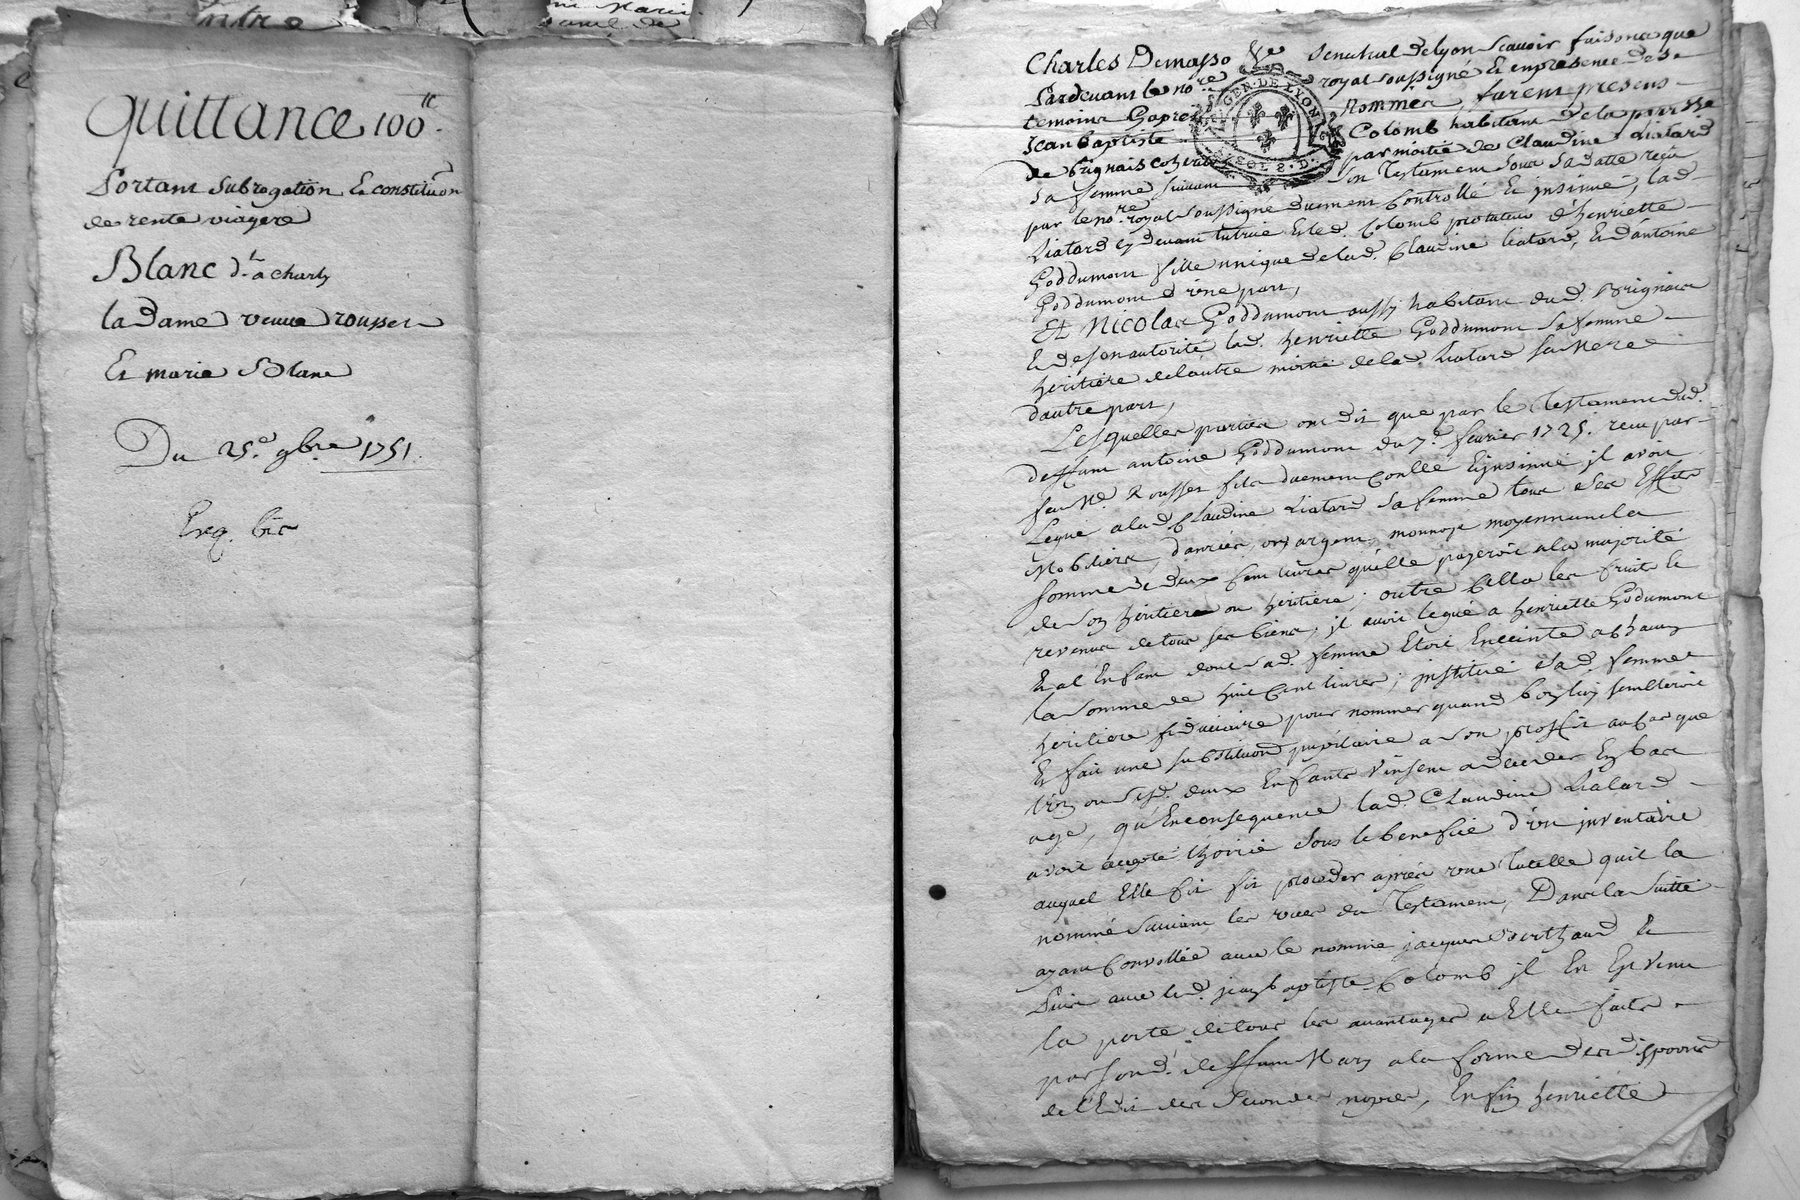 Quittance 100.tt
Portant subrogation Et constituōn
de rente viagere
Blanc d.t a charly
La Dame veuve rousset
Et marie Blanc
Du 25.e 9bre 1751.
GEN. DE LYON
2. S. D.
Charles Demasso Senechal de Lyon Scavoir faisons que
Pardevant le no.re royal soussigné Et en presence des
temoins Et apres Nommés, furent presens
Jean baptiste Colomb habitant de la parroisse
de brignais coheritier par moitié de Claudine Liatard
sa femme suivant son Testament sous sa datte reçu
par le no.re royal soussigné duement Controllé Et insinué, lad.
Liatard cy devant tutrice Et led. Colomb protuteur d'henriette
Goddumont fille unique de lad. Claudine Liatard, Et d'antoine
Goddumont d'vne part,
Et Nicolas Goddumont aussy habitant dud. Brignais
Et de son autorité lad. henriette Goddumont sa femme
heritiere de lautre moitié de lad. Liatard sa Mere
dautre part,
Lesquelles parties ont dit que par le Testament dud.
deffunt antoine Goddumont du 7.e fevrier 1725. recu par
feu M.e Rousset fils duement conllé Et insinué il avoit
Legué a lad. Claudine Liatard sa femme tous ses Effets
Mobiliers, danrées, or, argent, monnoye moyennant la
somme de deux Cent livres qu'elle payeroit a la majorité
de son heritier ou heritiere; outre Cella les fruits Et
revenus de tous ses biens, il avoit legué a henriette Godumont
Et al Enfant dont sad. femme Etoit Enceinte a Chacun
la somme de huit Cent livres; institué sad. femme
heritiere fiduciaire pour nommer quand bon luy sembleroit
Et fait une substituōn pupilaire a son proffit au Cas que
l'un ou lesd. deux Enfants vinsent a deceder En bas
age, qu'En consequence lad. Claudine Liatard
avoit accepté l'hoirie sous le benefice d'vn inventaire
auquel Elle fit procéder après vne tutelle quil la
nommé suivant les vües du Testament, Dans la suitte
ayant Convollée avec le nommé jacques Berthaud Et
Puis avec led. jean baptiste Colomb il En Est venu
la perte de tous les avantages a Elle faits
par sond. deffunt Mary a la forme des disp͞ons
de l'Edit des secondes nopces, Enfin henriette